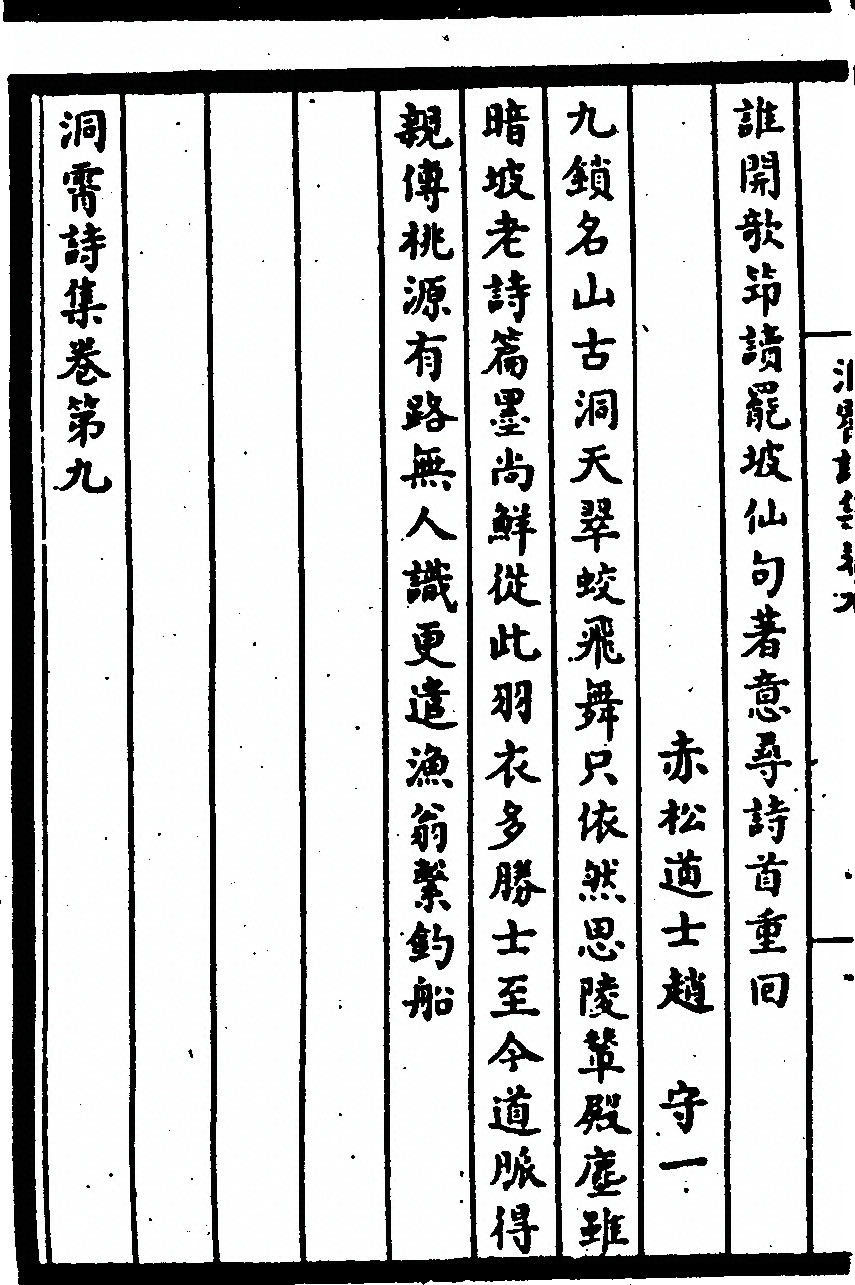 誰開歌笻讀罷坡仙句著意尋詩首重回
赤松道士趙　守一
九鎖名山古洞天翠蛟飛舞只依然思陵輦殿塵雖
暗坡老詩篇墨尚鮮從此羽衣多勝士至今道脈得
親傳桃源有路無人識更遣漁翁繫釣船
洞霄詩集卷第九